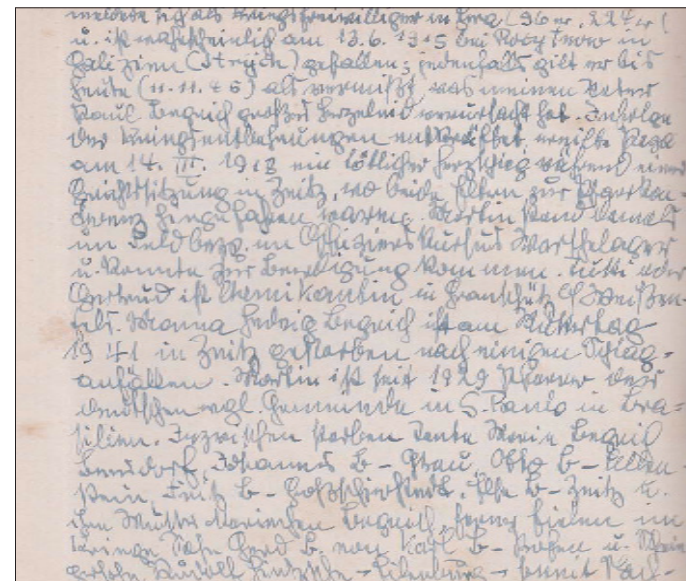 meldete sich als Kriegsfreiwilliger in Gera (96er, 224er)
u. ist wahrscheinlich am 13.6.1915 bei in
Galizien (Stryj) gefallen; jedenfalls gilt er bis
heute (11.11.46) als vermißt, was meinem Vater
Paul Begrich großes Herzeleid verursacht hat. Infolge
der Kriegsentbehrungen entkräftet, ereilte Papa
am 14. III. 1918 ein tötlicher Herzschlag während einer
Gerichtssitzung in Zeitz, wo beide Eltern zur
hingefahren waren. Martin stand damals
im Feld bezw. im Offizierskursus Warthelager
u. konnte zur Beerdigung kommen. Tutti oder
Gertrud ist Chemikantin in Granschütz b/Weißen-
fels. Mama Hedwig Begrich ist am Muttertag
1941 in Zeitz gestorben nach einigen Schlag-
anfällen. Martin ist seit 1929 Pfarrer der
deutschen evgl. Gemeinde in S. Paulo in Bra-
silien. Inzwischen starben Tante Marie Begrich
Johannes B - Otto B -
Fritz B - Else B - Zeitz u.
ihre Mutter Begrich, ferner fielen im
Kriege Sohn Gerd B. von Karl B - u.
Rudolf - Eilenburg - somit